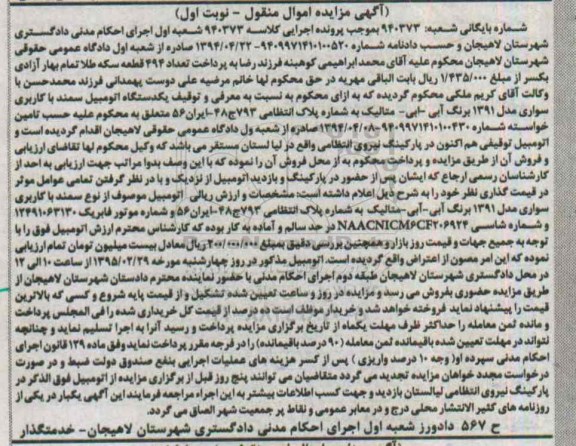 (آگهی مزایده اموال منقول - نوبت اول)
شماره بایگانی شعبه: ۹۴۰۳۷۳ بموجب پرونده اجرایی کلاسه ۹۴۰۳۷۳ شعبه اول اجرای احکام مدنی دادگستری
شهرستان لاهیجان و حسب دادنامه شماره ۹۴۰۹۹۷۱۴۱۰۱۰۰۵۲۰-۱۳۹۴/۰۴/۲۲ صادره از شعبه اول دادگاه عمومی حقوقی
شهرستان لاهیجان محکوم علیه آقای محمد ابراهیمی کوهبنه فرزند رضا به پرداخت تعداد ۴۹۴ قطعه سکه طلا تمام بهار آزادی
بکسر از مبلغ ۱/۴۳۵/۰۰۰ ریال بابت الباقی مهریه در حق محکوم لها خانم مرضیه علی دوست پهمدانی فرزند محمدحسن با
وکالت آقای کریم ملکی محکوم گردیده که به ازای محکوم به نسبت به معرفی و توقیف یکدستگاه اتومبیل سمند با کاربری
سواری مدل ۱۳۹۱ برنگ آبی -آبی- متالیک به شماره پلاک انتظامی ۷۹۳ج۴۸-ایران۵۶ متعلق به محکوم علیه حسب تامین
خواسته شماره ۹۴۰۹۹۷۱۴۱۰۱۰۰۴۳۰-۱۳۹۴/۰۴/۰۸ صادره از شعبه اول دادگاه عمومی حقوقی لاهیجان اقدام گردیده است و
اتومبیل توقیفی هم اکنون در پارکینگ نیروی انتظامی واقع در لیالستان مستقر می باشد که وکیل محکوم لها تقاضای ارزیابی
و فروش آن از طریق مزایده و پرداخت محکوم به از محل فروش آن را نموده که با این وصف بدوا مراتب جهت ارزیابی به احد از
کارشناسان رسمی ارجاع که ایشان پس از حضور در پارکینگ و بازدید اتومبیل از نزدیک و با در نظر گرفتن تمامی عوامل موثر
در قیمت گذاری نظر خود را به شرح ذیل اعلام داشته است: مشخصات و ارزش ریالی اتومبیل موصوف از نوع سمند با کاربری
سواری مدل ۱۳۹۱ برنگ آبی -آبی-متالیک به شماره پلاک انتظامی ۷۹۳ج۴۸-ایران۵۶ و شماره موتور فابریک ۱۲۴۹۱۰۶۳۱۳۰
و شماره شاسی NAACN1CM6CF206924 در حد سالم و آماده به کار بوده که کارشناس محترم ارزش اتومبیل فوق را با
توجه به جمیع جهات و قیمت روز بازار و همچنین بررسی دقیق بمبلغ ریال معادل بیست میلیون تومان تمام ارزیابی
نموده که این امر مصون از اعتراض واقع گردیده است. اتومبیل مذکور در روز چهارشنبه مورخه ۱۳۹۵/۰۲/۲۹ از ساعت ۱۰ الی ۱۲
در محل دادگستری شهرستان لاهیجان طبقه دوم اجرای احکام مدنی با حضور نماینده محترم دادستان شهرستان لاهیجان از
طریق مزایده حضوری بفروش می رسد و مزایده در روز و ساعت تعیین شده تشکیل و از قیمت پایه شروع و کسی که بالاترین
قیمت را پیشنهاد نماید فروخته خواهد شد و خریدار موظف است ده درصد از قیمت کل خریداری شده را فی المجلس پرداخت
و مانده ثمن معامله را حداکثر ظرف مهلت یکماه از تاریخ برگزاری مزایده پرداخت و رسید آنرا به اجرا تسلیم نماید و چنانچه
نتواند در مهلت تعیین شده باقیمانده ثمن معامله (۹۰ درصد باقیمانده) را در فرجه مقرر پرداخت نماید وفق ماده ۱۲۹ قانون اجرای
احکام مدنی سپرده او( وجه ۱۰ درصد واریزی ) پس از کسر هزینه های عملیات اجرایی بنفع صندوق دولت ضبط و در صورت
درخواست مجدد خواهان مزایده تجدید می گردد متقاضیان می توانند پنج روز قبل از برگزاری مزایده از اتومبیل فوق الذکر در
پارکینگ نیروی انتظامی لیالستان بازدید و جهت کسب اطلاعات بیشتر به این اجراء مراجعه فرمایند این آگهی یکبار در یکی از
روزنامه های کثیر الانتشار محلی درج و در معابر عمومی و نقاط پر جمعیت شهر الصاق می گردد.
ح ۵۶۷ دادورز شعبه اول اجرای احکام مدنی دادگستری شهرستان لاهیجان- خدمتگذار